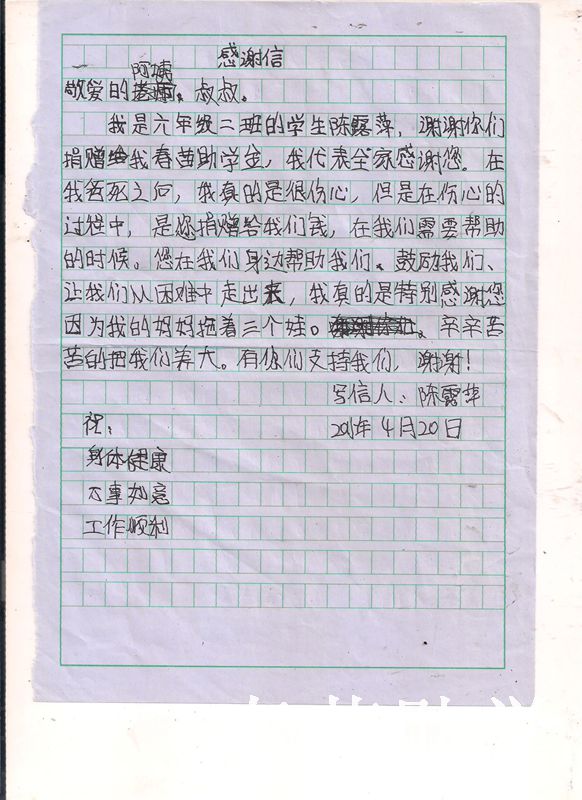 感谢信
阿姨
敬爱的老师。叔叔。
我是六年级二班的学生陈露萍，谢谢你们
捐赠给我春苗助学金，我代表全家感谢您。在
我爸死之后，我真的是很伤心，但是在伤心的
过程中，是你捐赠给我们钱，在我们需要帮助
的时候。您在我们身边帮助我们、鼓励我们、
让我们从困难中走出来，我真的是特别感谢您
因为我的妈妈拖着三个娃。辛辛苦
苦的把我们养大。有你们支持我们，谢谢！
写信人：陈露萍
祝：
年4月20日
身体健康
万事如意
工作顺利